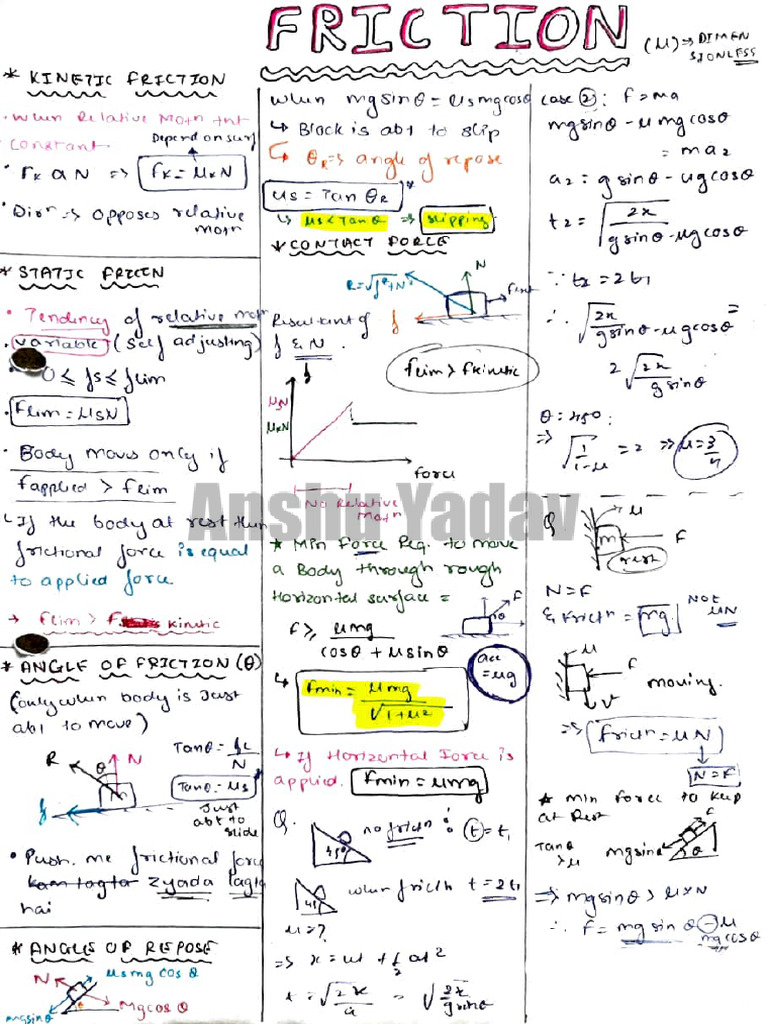 FRICTION
(μ) ⇒ DIMEN
SIONLESS
* KINETIC FRICTION
• When Relative Motn tnt
Constant
Depend on surf
• fk α N ⇒ fk = μkN
• Dirn ⇒ opposes relative
motn
* STATIC FRICEN
• Tendency of relative motn
• variable (self adjusting)
• 0 ≤ fs ≤ flim
• Flim = μsN
• Body moves only if
fapplied > flim
↳ If the body at rest then
frictional force is equal
to applied force
→ flim > f kinetic
* ANGLE OF FRICTION (θ)
(only when body is Just
abt to move)
R θ N
Tanθ = fL/N
Tanθ = μs
f m
Just
abt to
slide
• Push me frictional force
kam lagta zyada lagta
hai
* ANGLE OF REPOSE
μsmg cos θ
N
θ
mgsinθ
Mgcos θ
when mgsinθ = μsmgcosθ
↳ Block is abt to slip
↳ θR ⇒ angle of repose
μs = Tan θR *
↳ μs < Tanθ ⇒ slipping
* CONTACT FORCE
R = √f²+N²
N
f
Resultant of
f & N.
flim > fkinetic
f
μsN
μkN
force
No Relative
Motn
* Min force Req. to move
a Body through rough
Horizontal surface =
F
θ
F ≥ μmg / cosθ + μsinθ
acc
= μg
↳ Fmin = μmg / √1+μ²
↳ If Horizontal force is
applied. Fmin = μmg
Q. no fricn : t = t1
45°
when fricth t = 2t1
45
μ = ?
⇒ x = ut + ½ at²
t = √2x/a = √2x/gsinθ
case ②: F = ma
mgsinθ - μ mgcosθ
= ma2
a2 = g sinθ - μgcosθ
t2 = √2x/gsinθ - μgcosθ
∵ t2 = 2t1
∴ √2x/gsinθ - μgcosθ =
2 √2x/gsinθ
θ = 45°:
⇒ √1/1-μ = 2 ⇒ μ = 3/4
Q μ
m F
rest
N = F
& Fricth = mg
Not
μN
μ
F
moving.
v
⇒ Fricth = μN
N = F
* min force to keep
at Rest
F
Tanθ
> μ
mgsinθ
θ
⇒ mgsinθ > μ×N
∴ F = mg sin θ - μ
mg cosθ
Anshu Yadav